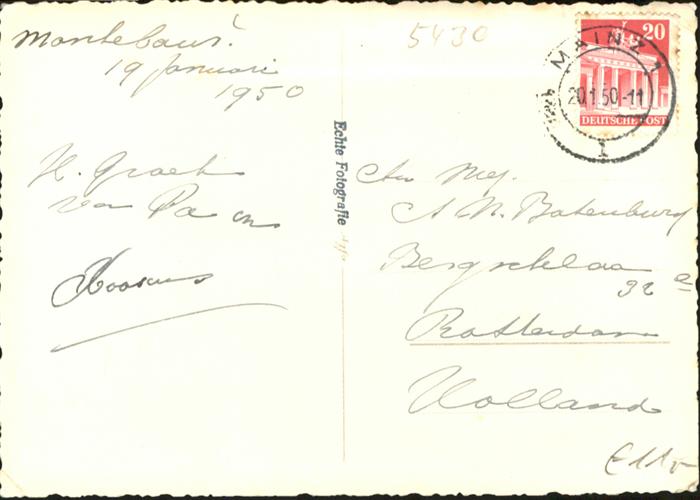 Montebaur.
19 Januari
1950
H. Groet
van Pa en
5430
20
MAINZ 1
20.1.50.-11
DEUTSCHE POST
1
Echte Fotografie
Mej.
A M. Batenburg
Bergselaan
32 a
Rotterdam
Holland